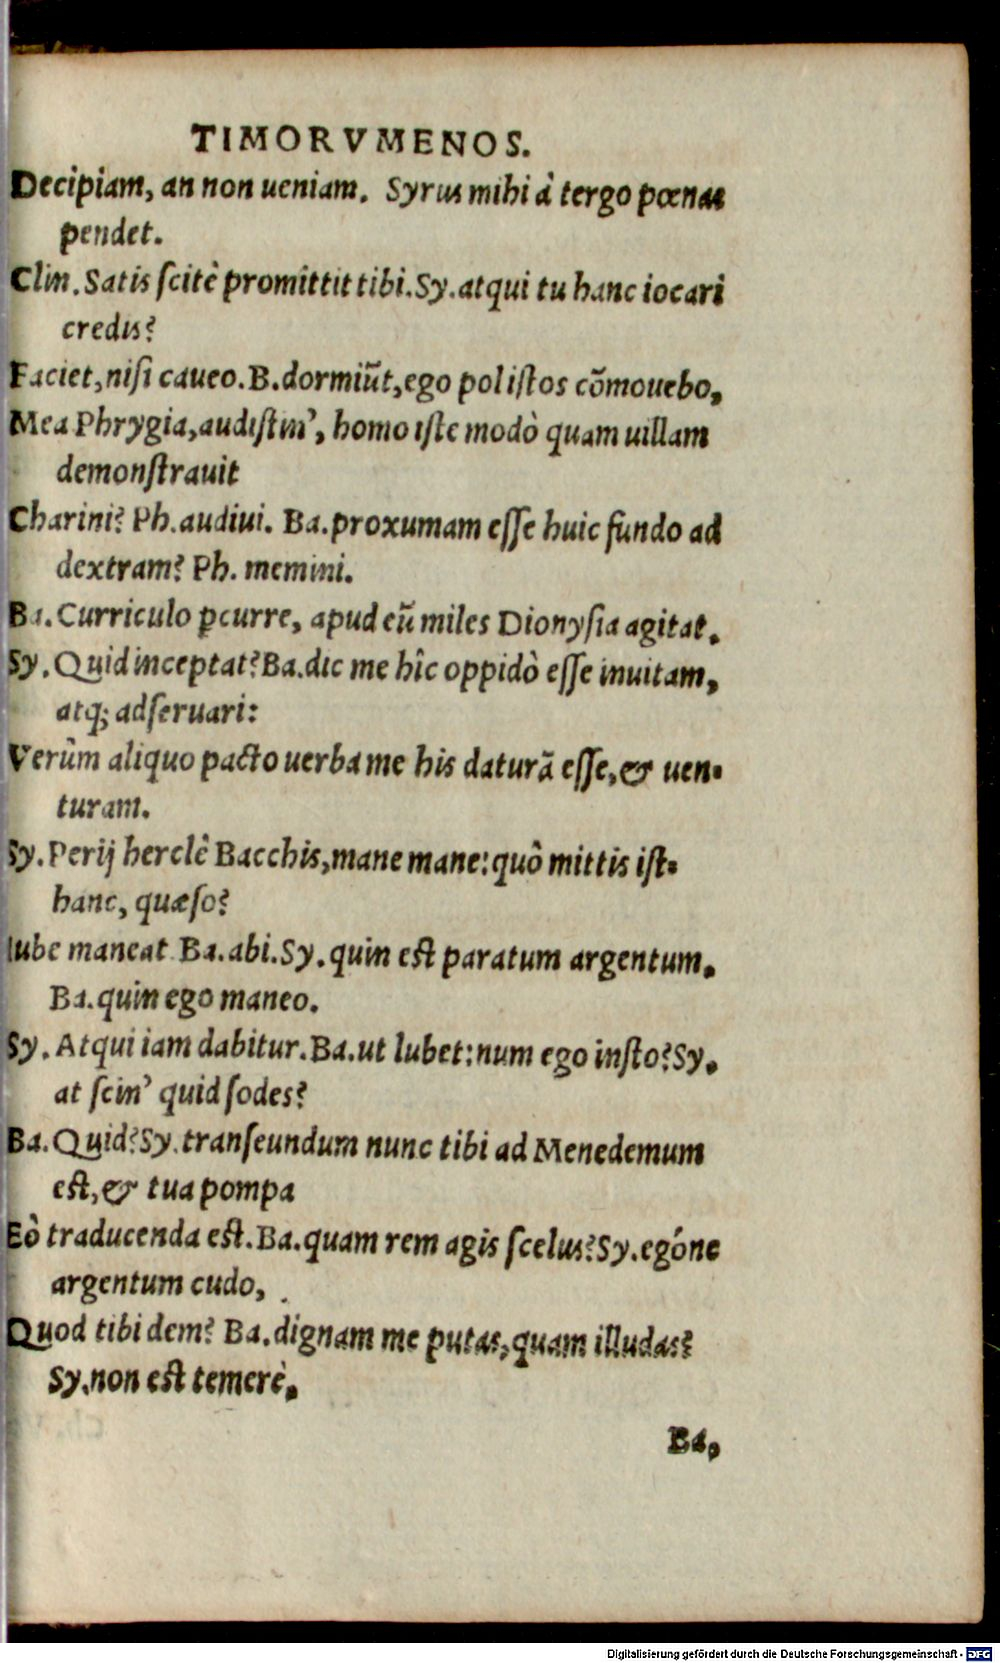 TIMORVMENOS.
Decipiam, an non ueniam. Syrus mihi à tergo pœnas
pendet.
Clin. Satis ſcitè promittit tibi. Sy. atqui tu hanc iocari
credis?
Faciet, niſi caueo. B. dormiūt, ego pol iſtos cōmouebo,
Mea Phrygia, audiſtin', homo iſte modò quam uillam
demonſtrauit
Charini? Ph. audiui. Ba. proxumam eſſe huic fundo ad
dextram? Ph. memini.
Ba. Curriculo ꝑcurre, apud eū miles Dionyſia agitat.
Sy. Quid inceptat? Ba. dic me hîc oppidò eſſe inuitam,
atq; adſeruari:
Verûm aliquo pacto uerba me his daturā eſſe, & uen-
turam.
Sy. Perij herclè Bacchis, mane mane: quò mittis iſt-
hanc, quæſo?
Iube maneat Ba. abi. Sy. quin eſt paratum argentum.
Ba. quin ego maneo.
Sy. Atqui iam dabitur. Ba. ut lubet: num ego inſto? Sy.
at ſcin' quid ſodes?
Ba. Quid? Sy. tranſeundum nunc tibi ad Menedemum
eſt, & tua pompa
Eò traducenda eſt. Ba. quam rem agis ſcelus? Sy. egóne
argentum cudo,
Quod tibi dem? Ba. dignam me putas, quam illudas?
Sy. non eſt temerè.
Ba,
Digitalisierung gefördert durch die Deutsche Forschungsgemeinschaft - DFG